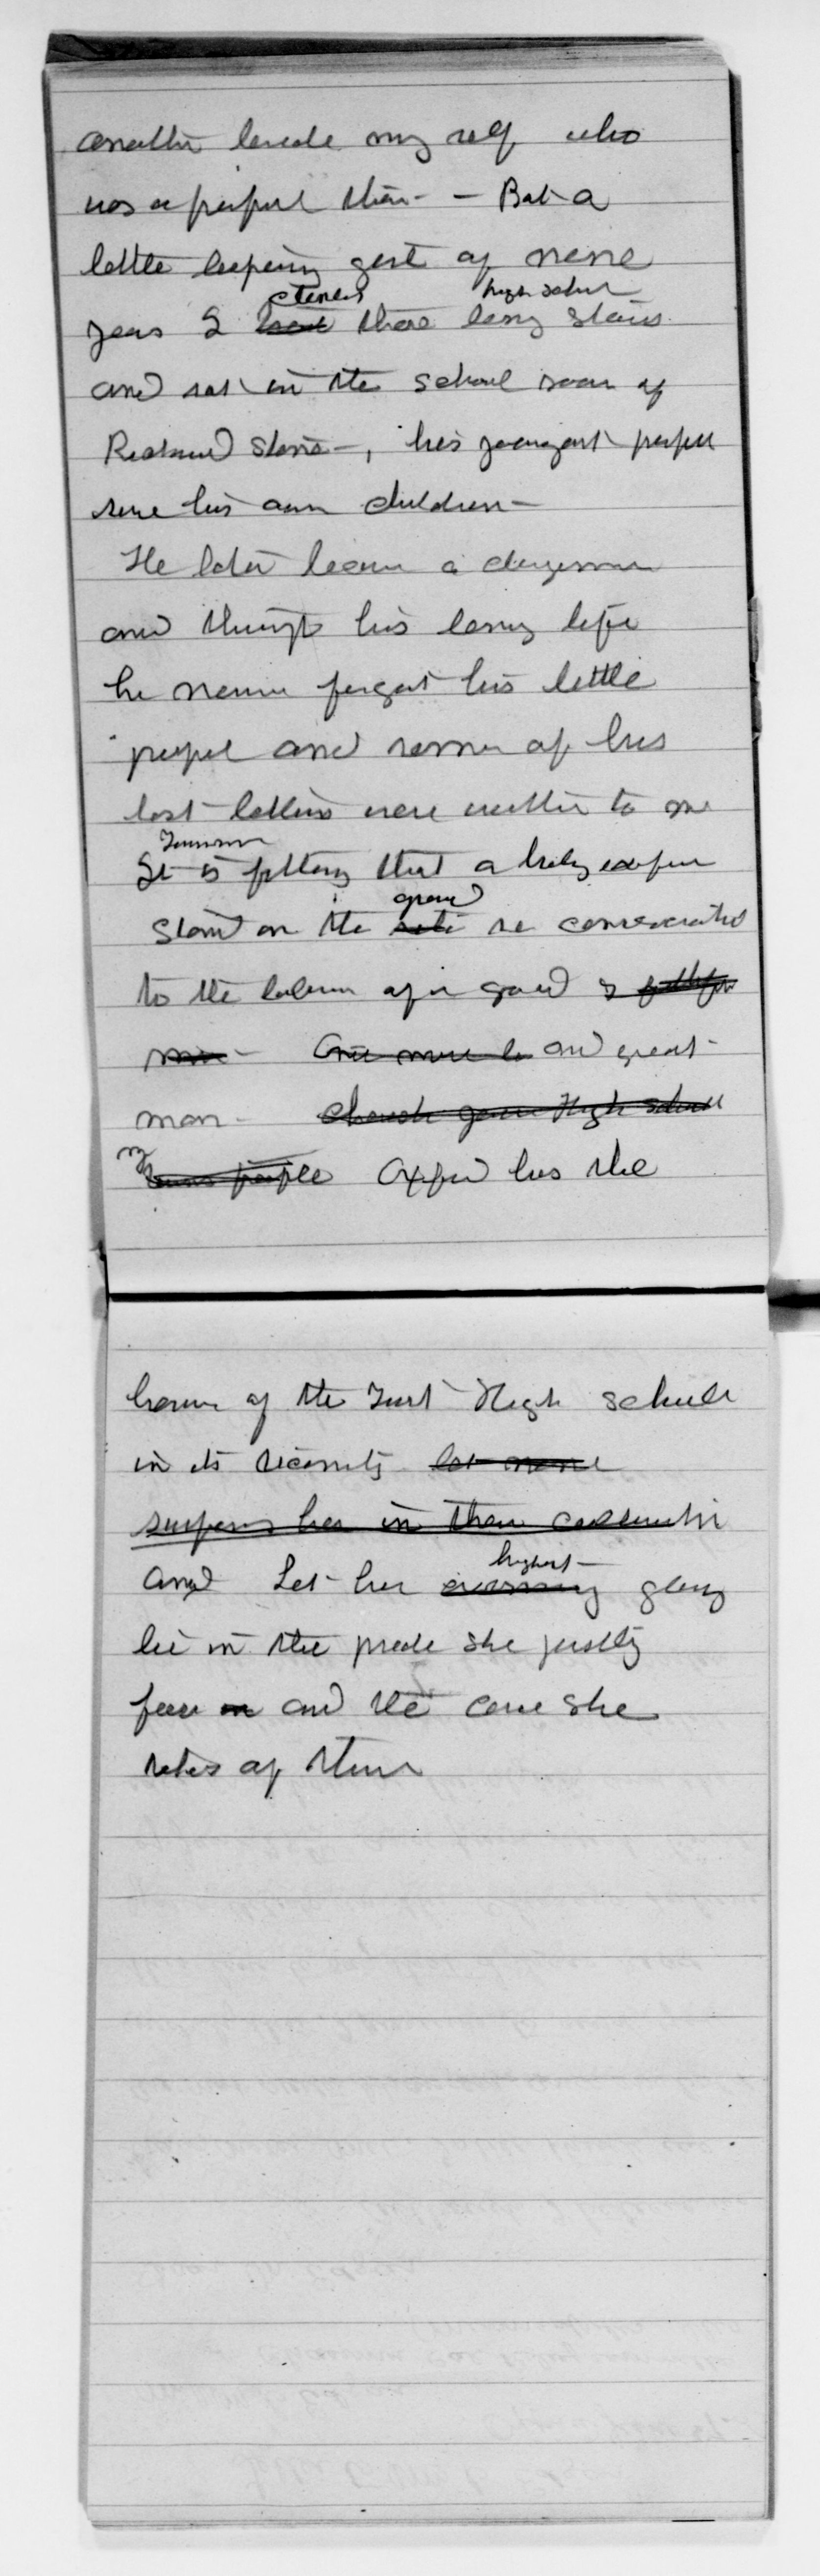 another beside my self who
was a pupil there - - But a
little lisping girl of nine
climbed high school
years I those long stairs
and sat in the school room of
Richard Stone -, his youngest pupil
save his own children -
He later became a clergyman
and through his long life
he never forgot his little
pupil and some of his
last letters were written to me
It is fitting that a
Stone on the ground be consecrated
to the labors of a good &
man - One more to and great
man - Church gave High School
people Oxford has the
honor of the first High School
in its vicinity let none
surpass her in their
And Let her highest glory
lie in the pride she justly
feels in and the care she
takes of them